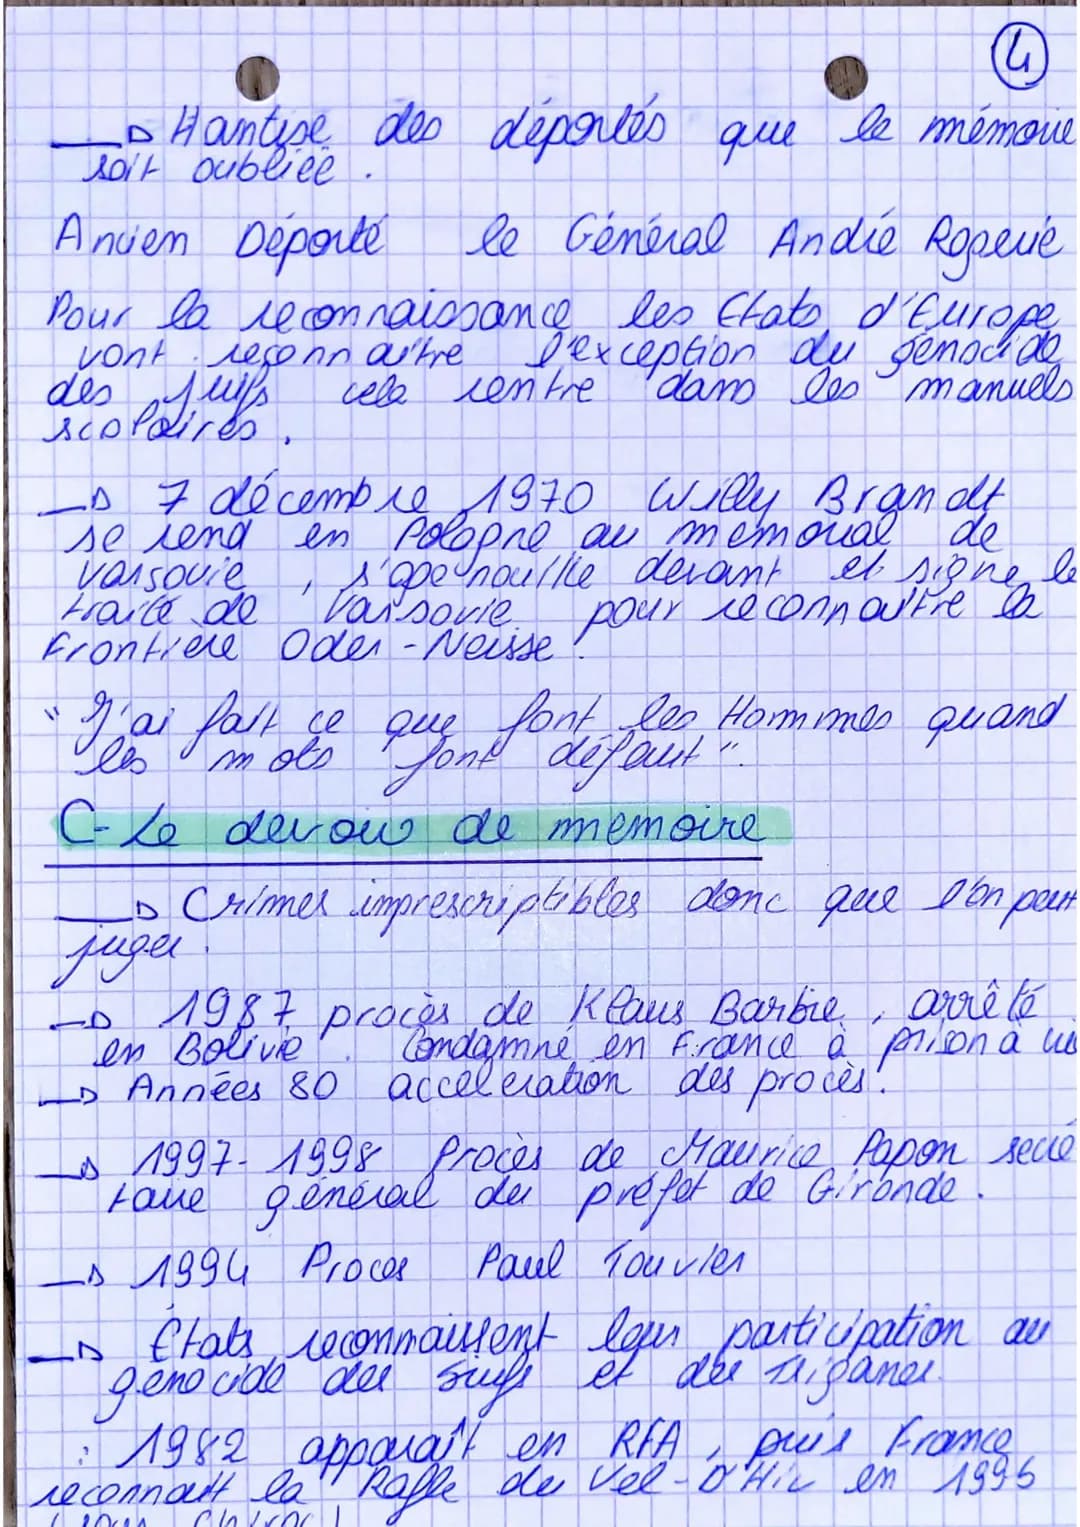 4
→ Hantise des déportés que le mémoire
soit oubliée.
Ancien Déporté le Général André Rogerie
Pour la reconnaissance les Etats d'Europe
vont reconnaitre l'exception du génocide
des juifs cela rentre dans les manuels
scolaires.
→ 7 décembre 1970 Willy Brandt
se rend en Pologne au mémorial de
varsovie, s'agenouille devant et signe le
traité de Varsovie pour reconnaître la
Frontière Oder-Neisse.
"J'ai fait ce que font les Hommes quand
les mots font défaut".
C- Le devoir de mémoire
→ Crimes imprescriptibles donc que l'on peut
juger.
→ 1987 procès de Klaus Barbie, arrêté
en Bolivie. Condamné en France à prison à vie
→ Années 80 accéleration des procès.
→ 1997-1998 Procès de Maurice Papon secré
taire général du préfet de Gironde.
→ 1994 Proces Paul Touvier
→ États reconnaissent leur participation au
génocide des Juifs et des Tziganes.
: 1982 apparaît en RFA, puis France
reconnait la Rafle du Vel-D'Hiv en 1995
(sous Chirac)